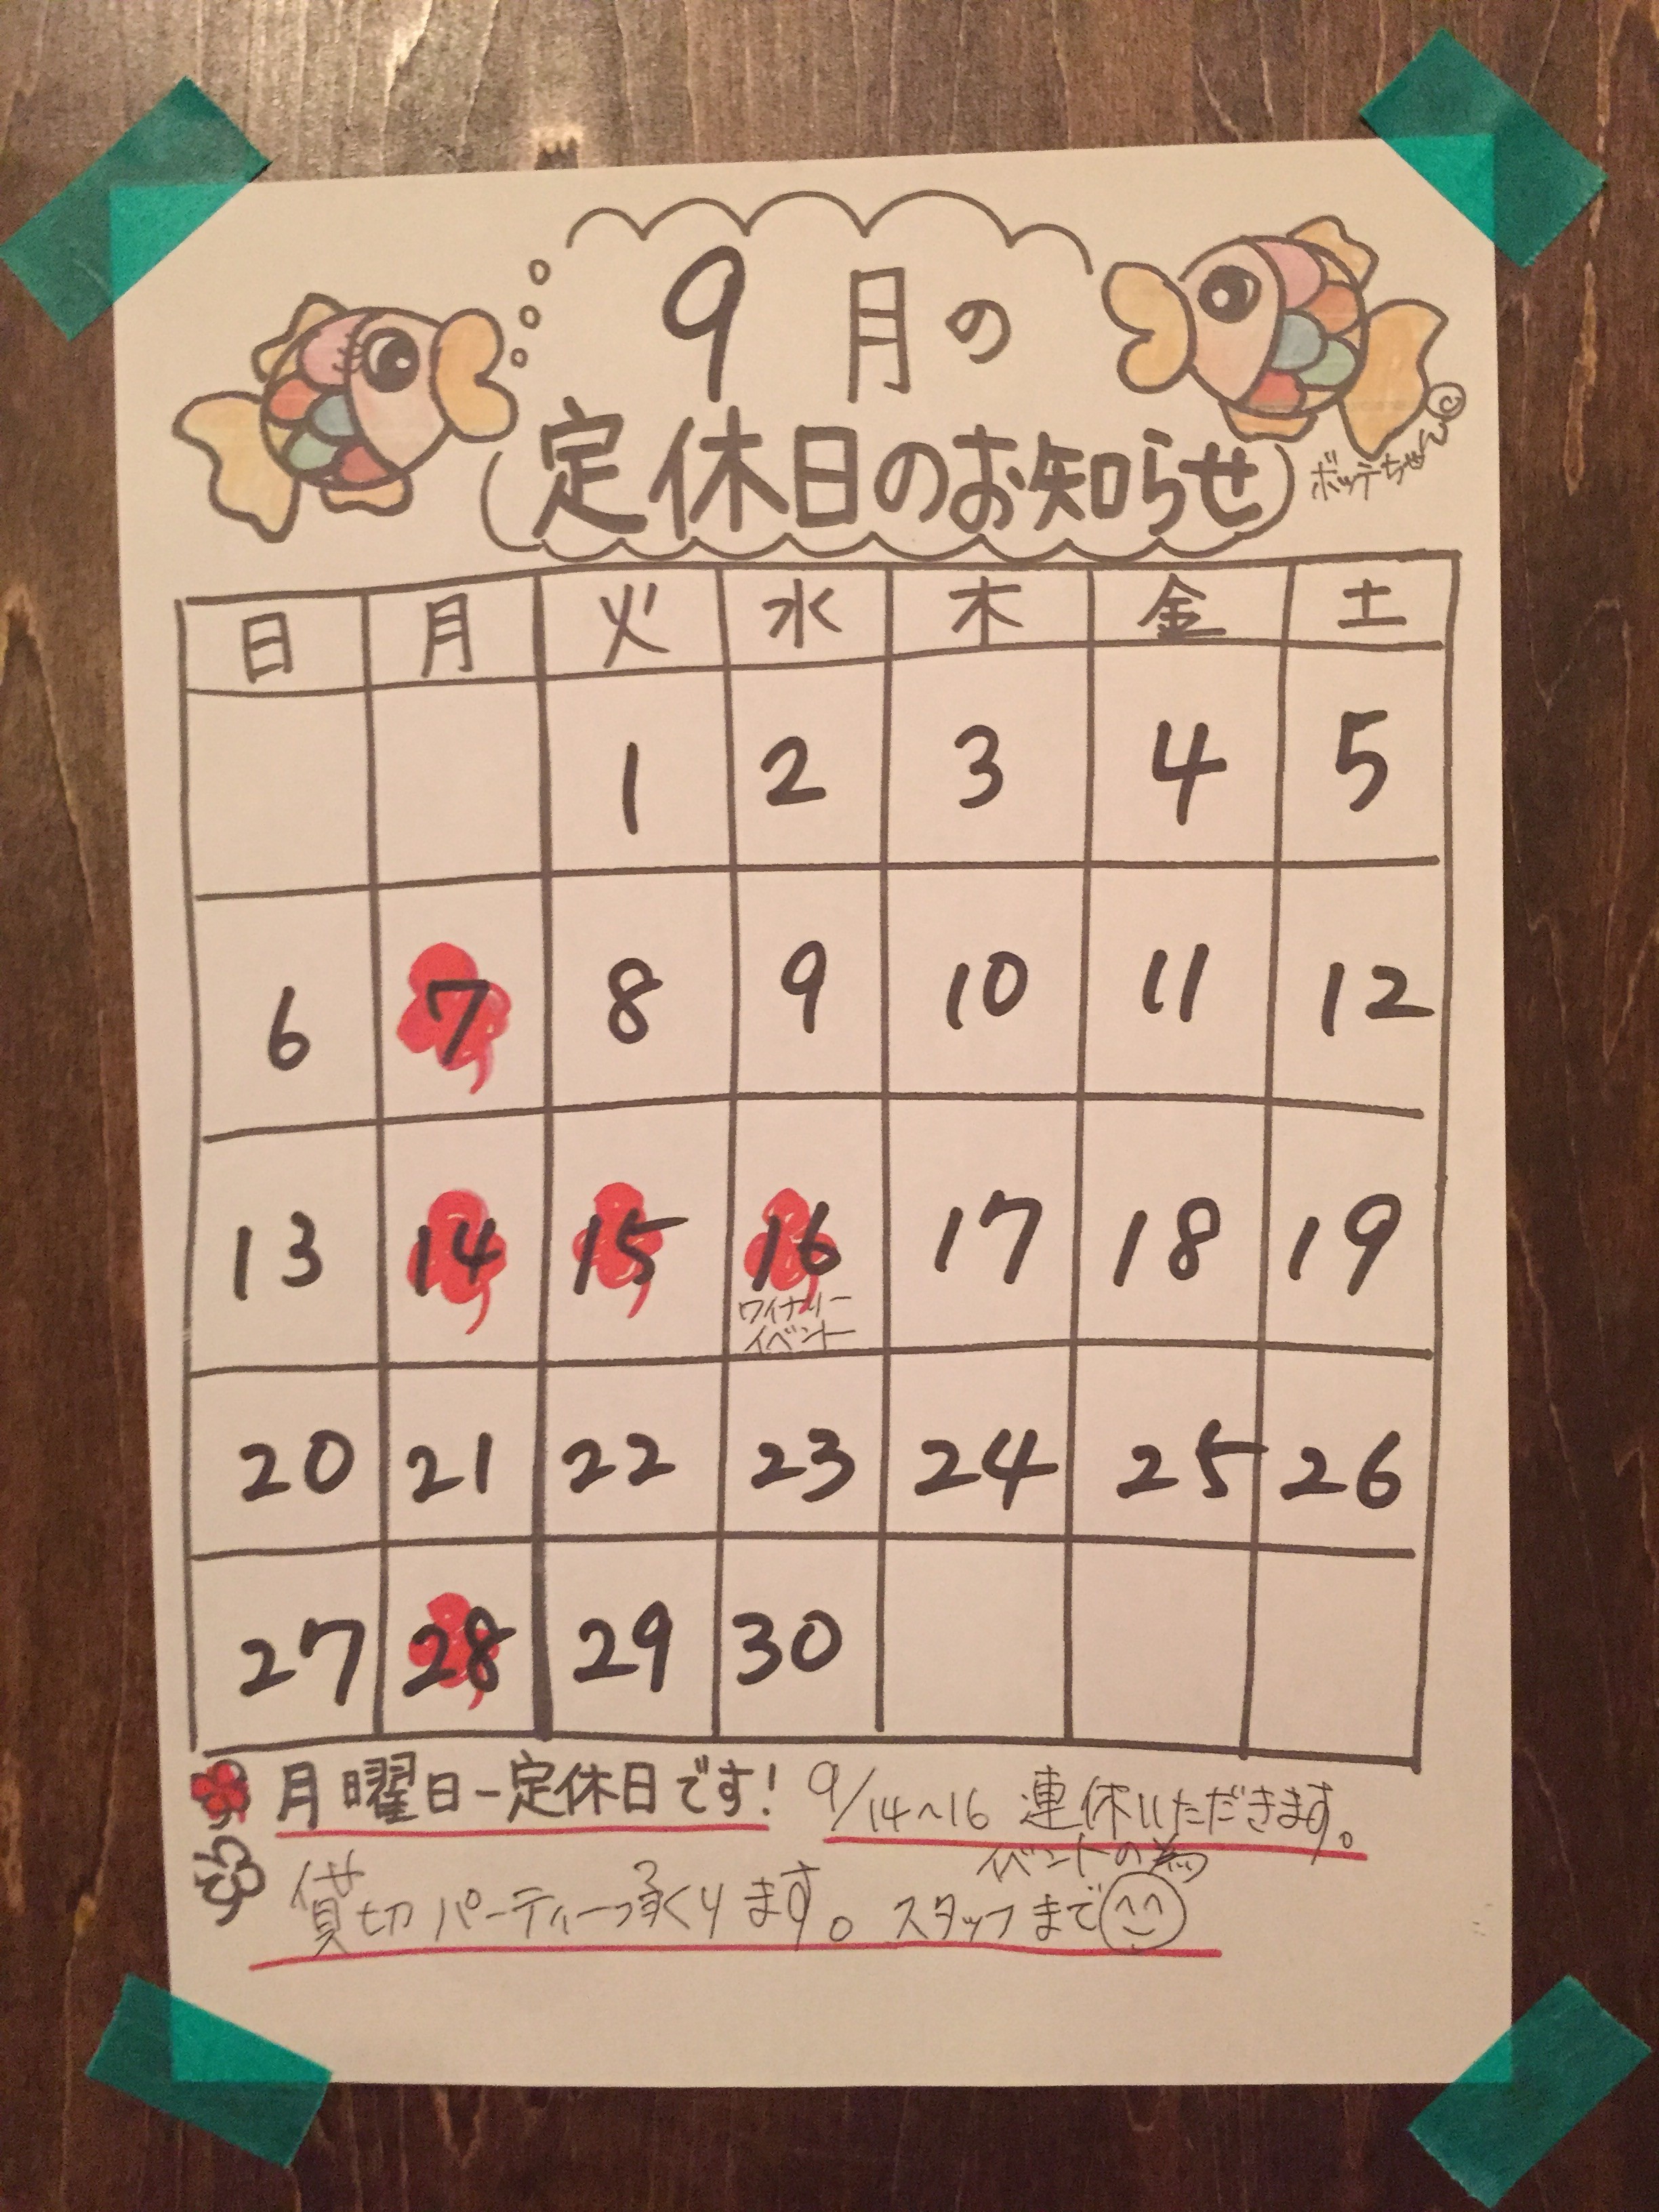 9月の
定休日のお知らせ
©
ボッテちゃん
日 月 火 水 木 金 土
1 2 3 4 5
6 7 8 9 10 11 12
13 14 15 16 17 18 19
ワイナリー
イベント
20 21 22 23 24 25 26
27 28 29 30
月曜日−定休日です! 9/14〜16 連休いただきます。
イベントの為
貸切パーティー承くります。スタッフまで